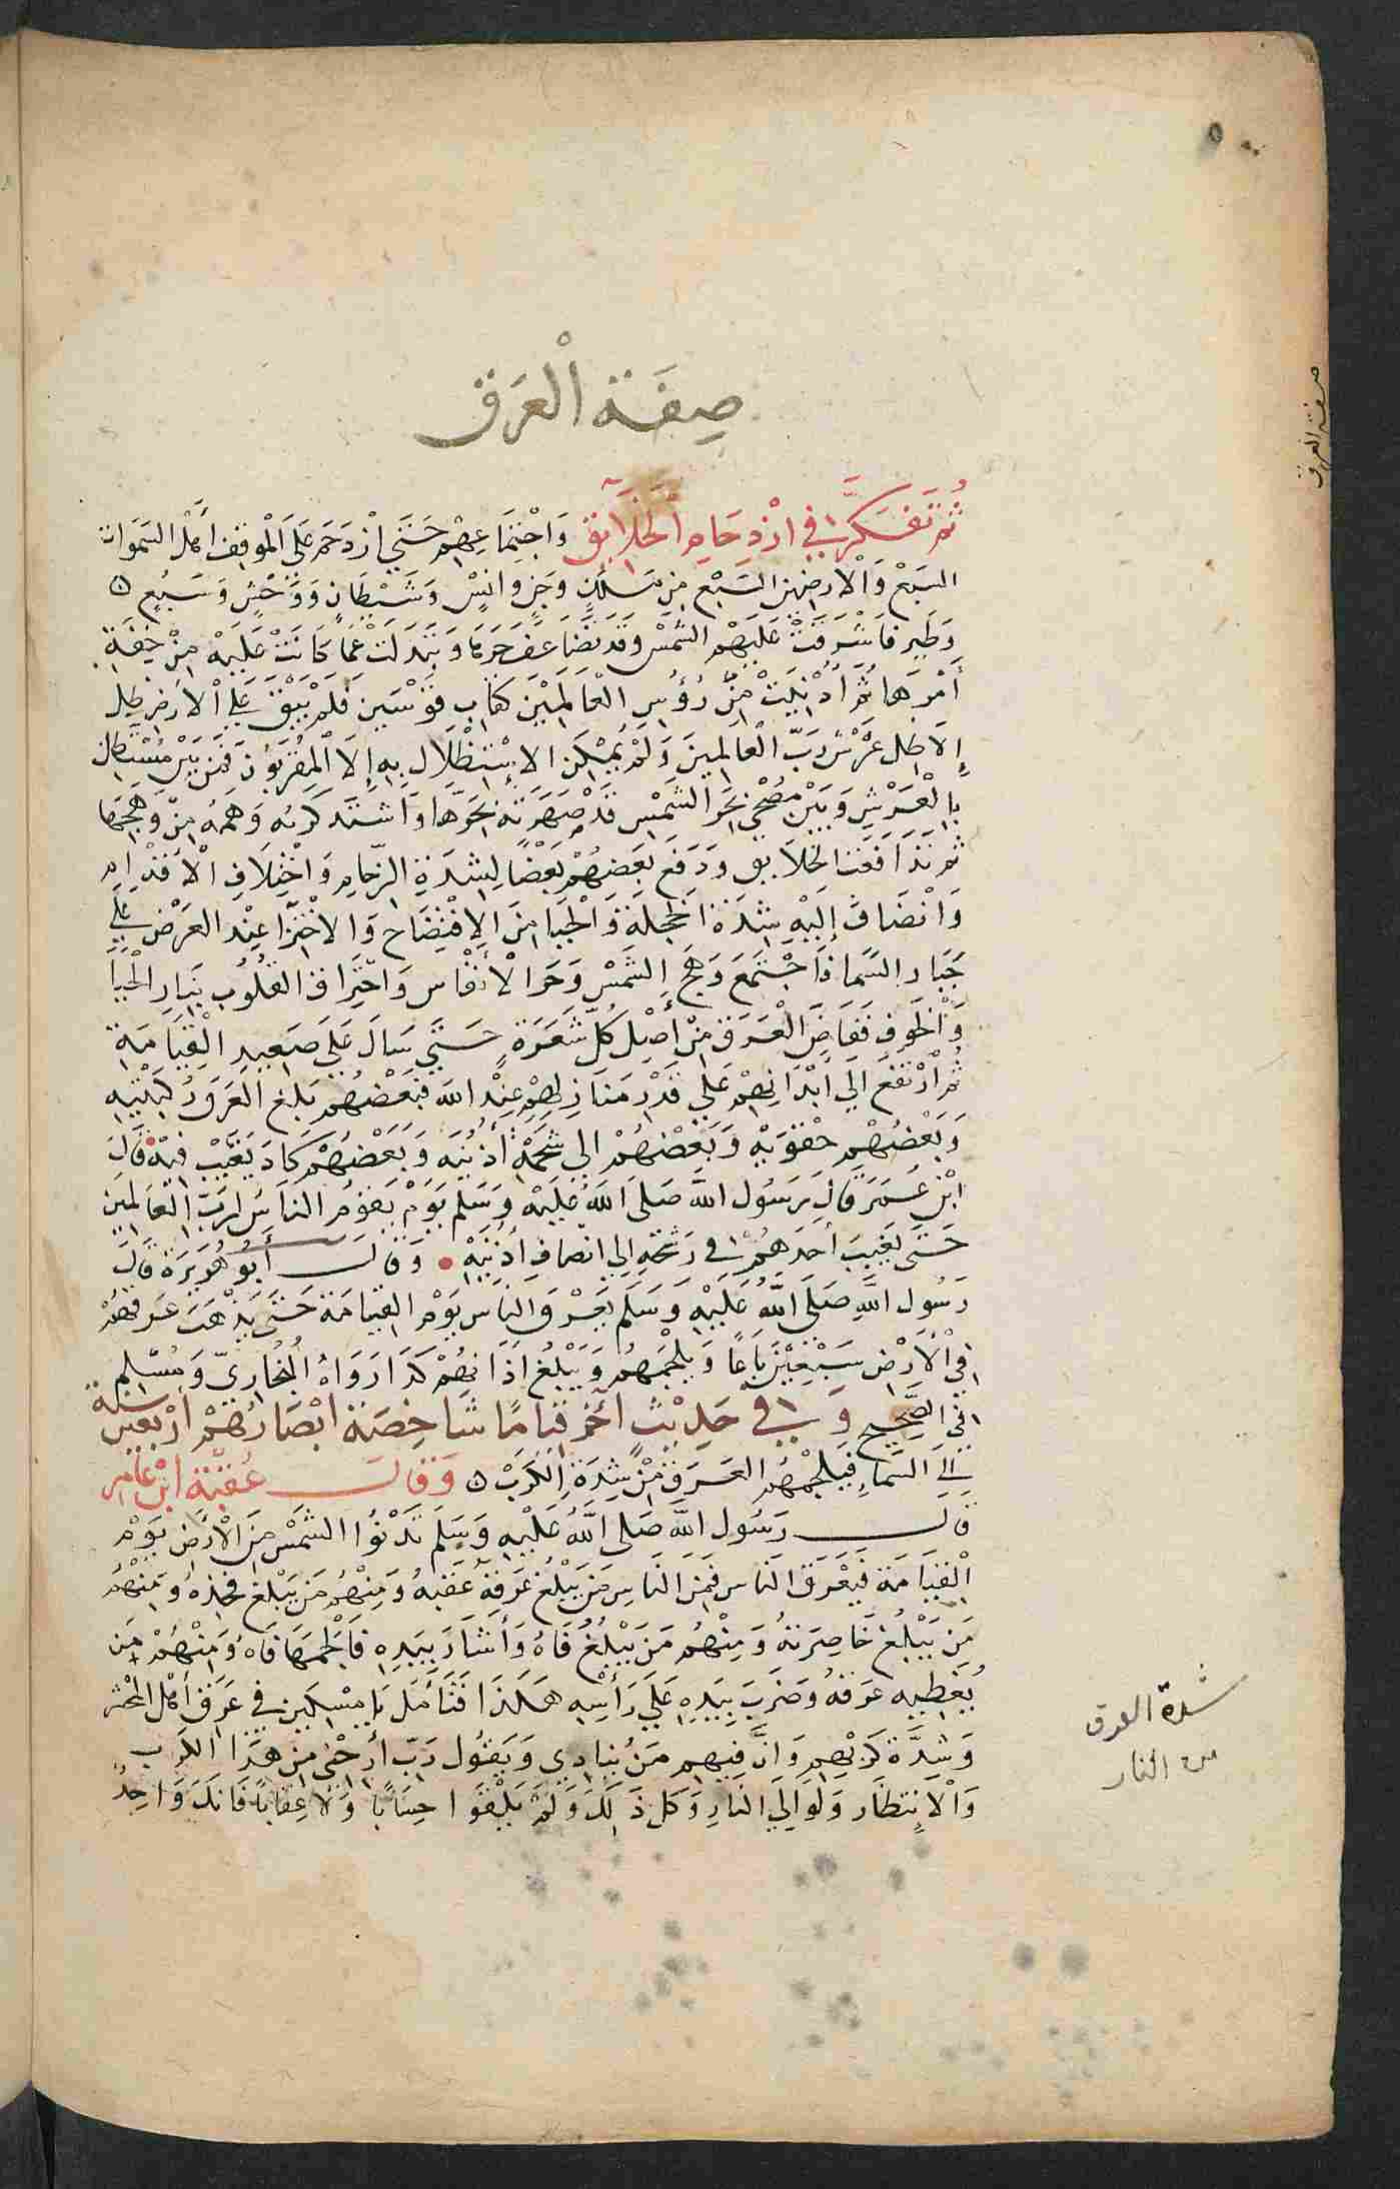 صِفَة الْعَرَق
ثُمّ تَفَكَّر في ازْدِحَامِ الْخَلَايِق وَاجْتِمَاعِهِمْ حَتَّي ازْدَحَمَ عَلَى الْمَوْقِف أهْل السَّمَوات
السَبْع وَالْارضِين السَّبْع مِن مَلَكٍ وَجِنٍ وَانِسٍ وَشَيْطَانٍ وَوَحْشٍ وَسَبُعٍ
وَطَيرٍ فَاشْرَقَتْ عَلَيْهِمْ الشَّمْس وَقَد تَضَاعَفَ حَرهَا وَتَبَدلَتْ عَمَّا كَانَتْ عَلَيْهِ مِنْ خِفَّةِ
أَمْرهَا ثُمَّ اُدْنِيَتْ مِنْ رُؤسِ الْعَالَمِيْنَ كقَابِ قَوْسَيْن فَلَمْ يَبْقَ عَلَي الْأَرْض ظِل
إلَّا ظِل عَرْش رَبّ الْعَالَمِينَ وَلَمْ يُمْكِن الاِسْتِظْلَال بِهِ إِلَّا الْمقَرَّبُوْنَ فَمِن بَيْن مُسْتَظِلٍ
بِالْعَرْشِ وَبَيْن مُضْحي بحَر الشَّمْسِ قَدْ صَهَرَتهُ بحَرِّهَا وَاشْتَد كَرْبُهُ وَهَمّهُ مِنْ وَهَجِهَا
ثم تَدَافَعَت الخَلَايِق وَدَفَعَ بَعضهُمْ بَعْضًا لِشِدَةِ الزِّحَامِ وَاخْتِلَافِ الْأَقْدَامِ
وَانْضَافَ إلَيْهِ شِدَة الخَجلَةِ وَالْحَيَا مِنَ الاِفْتِضَاح وَالاخْتِزَا عِنْد العَرْض عَلَي
جَبَار السَّمَا فَاجْتَمَعَ وَهَج الشَّمْس وَحَر الْأَنْفَاس وَاحْتِرَاق القُلُوْب بِنَارِ الْحَيَا
وَالخَوفِ فَفَاضَ الْعَرَق مِنْ أَصِيْلِ كُلّ شَعَرَةٍ حَتَّي سَالَ عَلَي صَعِيدِ الْقِيَامَةِ
ثُمّ ارْتَفَعَ الَي أَبْدَانِهِمْ عَلَي قَدْر مَنَازِلهِمْ عِنْد اللّٰه فَبَعْضُهُمْ بَلَغ العَرَق رُكْبَتْيْهِ
وَبَعْضُهُم حَقْوَيْهِ وَبَعْضهُمْ الي شَحْمَة أُذنَيْه وَبَعْضهُمْ كَادَ يَغِيْب فِيْهِ قَالَ
ابْن عُمَرَ قَالَ رَسُول اللّٰه صَلَى اللّٰه عَلَيْهِ وَسَلم يَوْم يَقوْمُ النَّاس لِرَبّ الْعَالَمِيْن
حَتَّى يَغِيبَ أَحَدهُمْ في رَشْحِهِ الي انصَافِ اُذنَيْهِ وَقَالَ أَبُو هُرَيْرَة قَالَ
رَسُول اللّٰهِ صَلَى اللّٰهُ عَلَيْهِ وَسَلَم يَعْرَق النَّاس يَوْم القِيَامَة حَتَّى يَذْهَبَ عَرَقهُمْ
في الْأَرْض سَبْعِيْنَ بَاعًا وَيلْجِمَهُم وَيَبْلُغ اَذَانهُمْ كَذَا رَوَاهُ الْبُخَارِيّ وَمُسْلِم
في الصَّحِيح وَفِي حَدِيْث آخر قِيَامًا شَاخِصَة ابْصَارُهُمْ أرْبَعِيْنَ سنة
اِلَي السَّمَاءِ فَيلْجِمُهُم العَرَق مِنْ شِدَةِ الْكَرْب وَقَالَ عُقْبَة ابْن عَامِر
قَالَ رَسُول اللّٰه صَلَى اللّٰهُ عَلَيْهِ وَسَلَم تَدْنُوا الشَّمْس مِنَ الْأَرْض يَوْم
الْقِيَامَة فَيَعْرَق النَّاس فَمِنَ النَّاسِ مَن يَبْلُغ عَرَقهُ عَقَبهُ وَمِنْهُمْ مَن يَبْلُغ فخذهُ وَمِنْهُمْ
مَن يَبْلُغ خَاصِرَتهُ وَمِنْهُم مَن يَبْلُغُ فَاهُ وَأَشَارَ بِيَدِهِ فَالْجَمَهَا فَاهُ وَمِنْهُمْ مَن
يُغَطِيهِ عَرَقهُ وَضَرَبَ بِيَدِهِ عَلَي رَأسِهِ هَكَذَا فَتَأَمَّل يَا مِسْكِين في عَرَق أهْل المَحْشر
وَشِدَّة كَرْبِهِم وَانَّ فِيهِم مَنْ يُنَادِي وَيَقُول رَبّ أَرِحْني مِنْ هَذَا الكَرْب
وَالْاِنتظَار وَلَو اِلَي النَّار وَكل ذَلِكَ وَلَمْ يَلْقَوا حِسَابًا وَلا عِقَابًا فَانكَ وَاحِدٌ
شدة العرق
من النار
صفة العرق